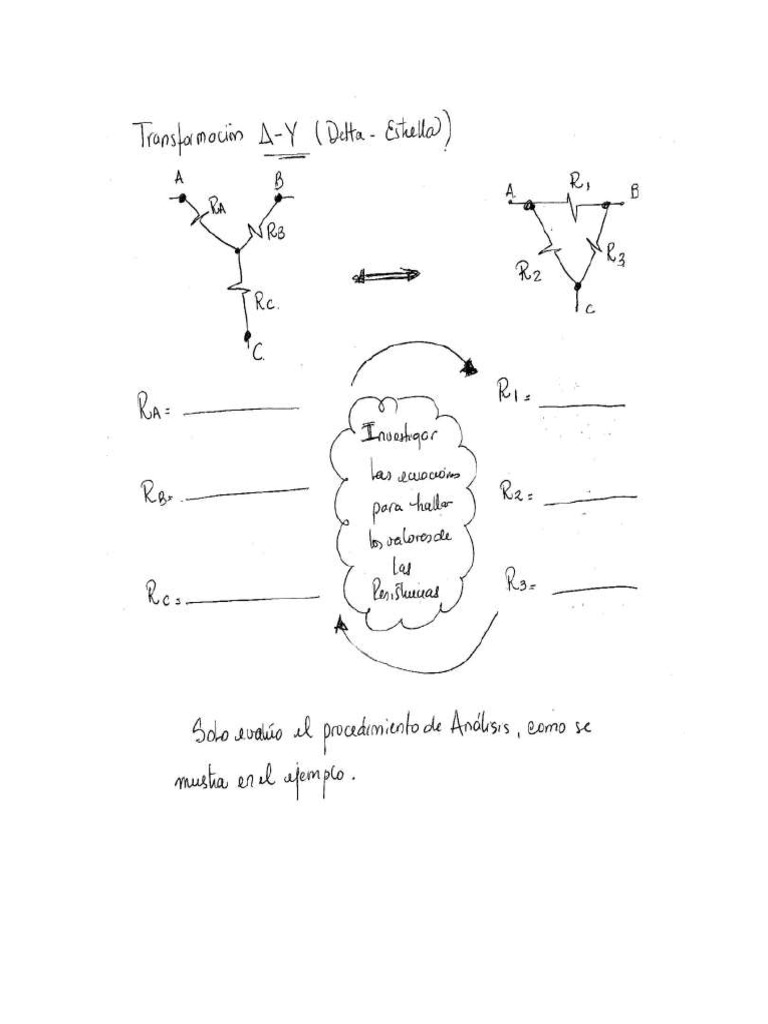 Transformación Δ-Y (Delta - Estrella)
A
B
RA
RB
Rc.
C.
A.
R1
B
R2
R3
C
RA=
RB=
Rc=
Investigar
las ecuaciones
para hallar
los valores de
las
Resistencias
R1=
R2=
R3=
Solo evalúo el procedimiento de Análisis, como se
mustra en el ejemplo.